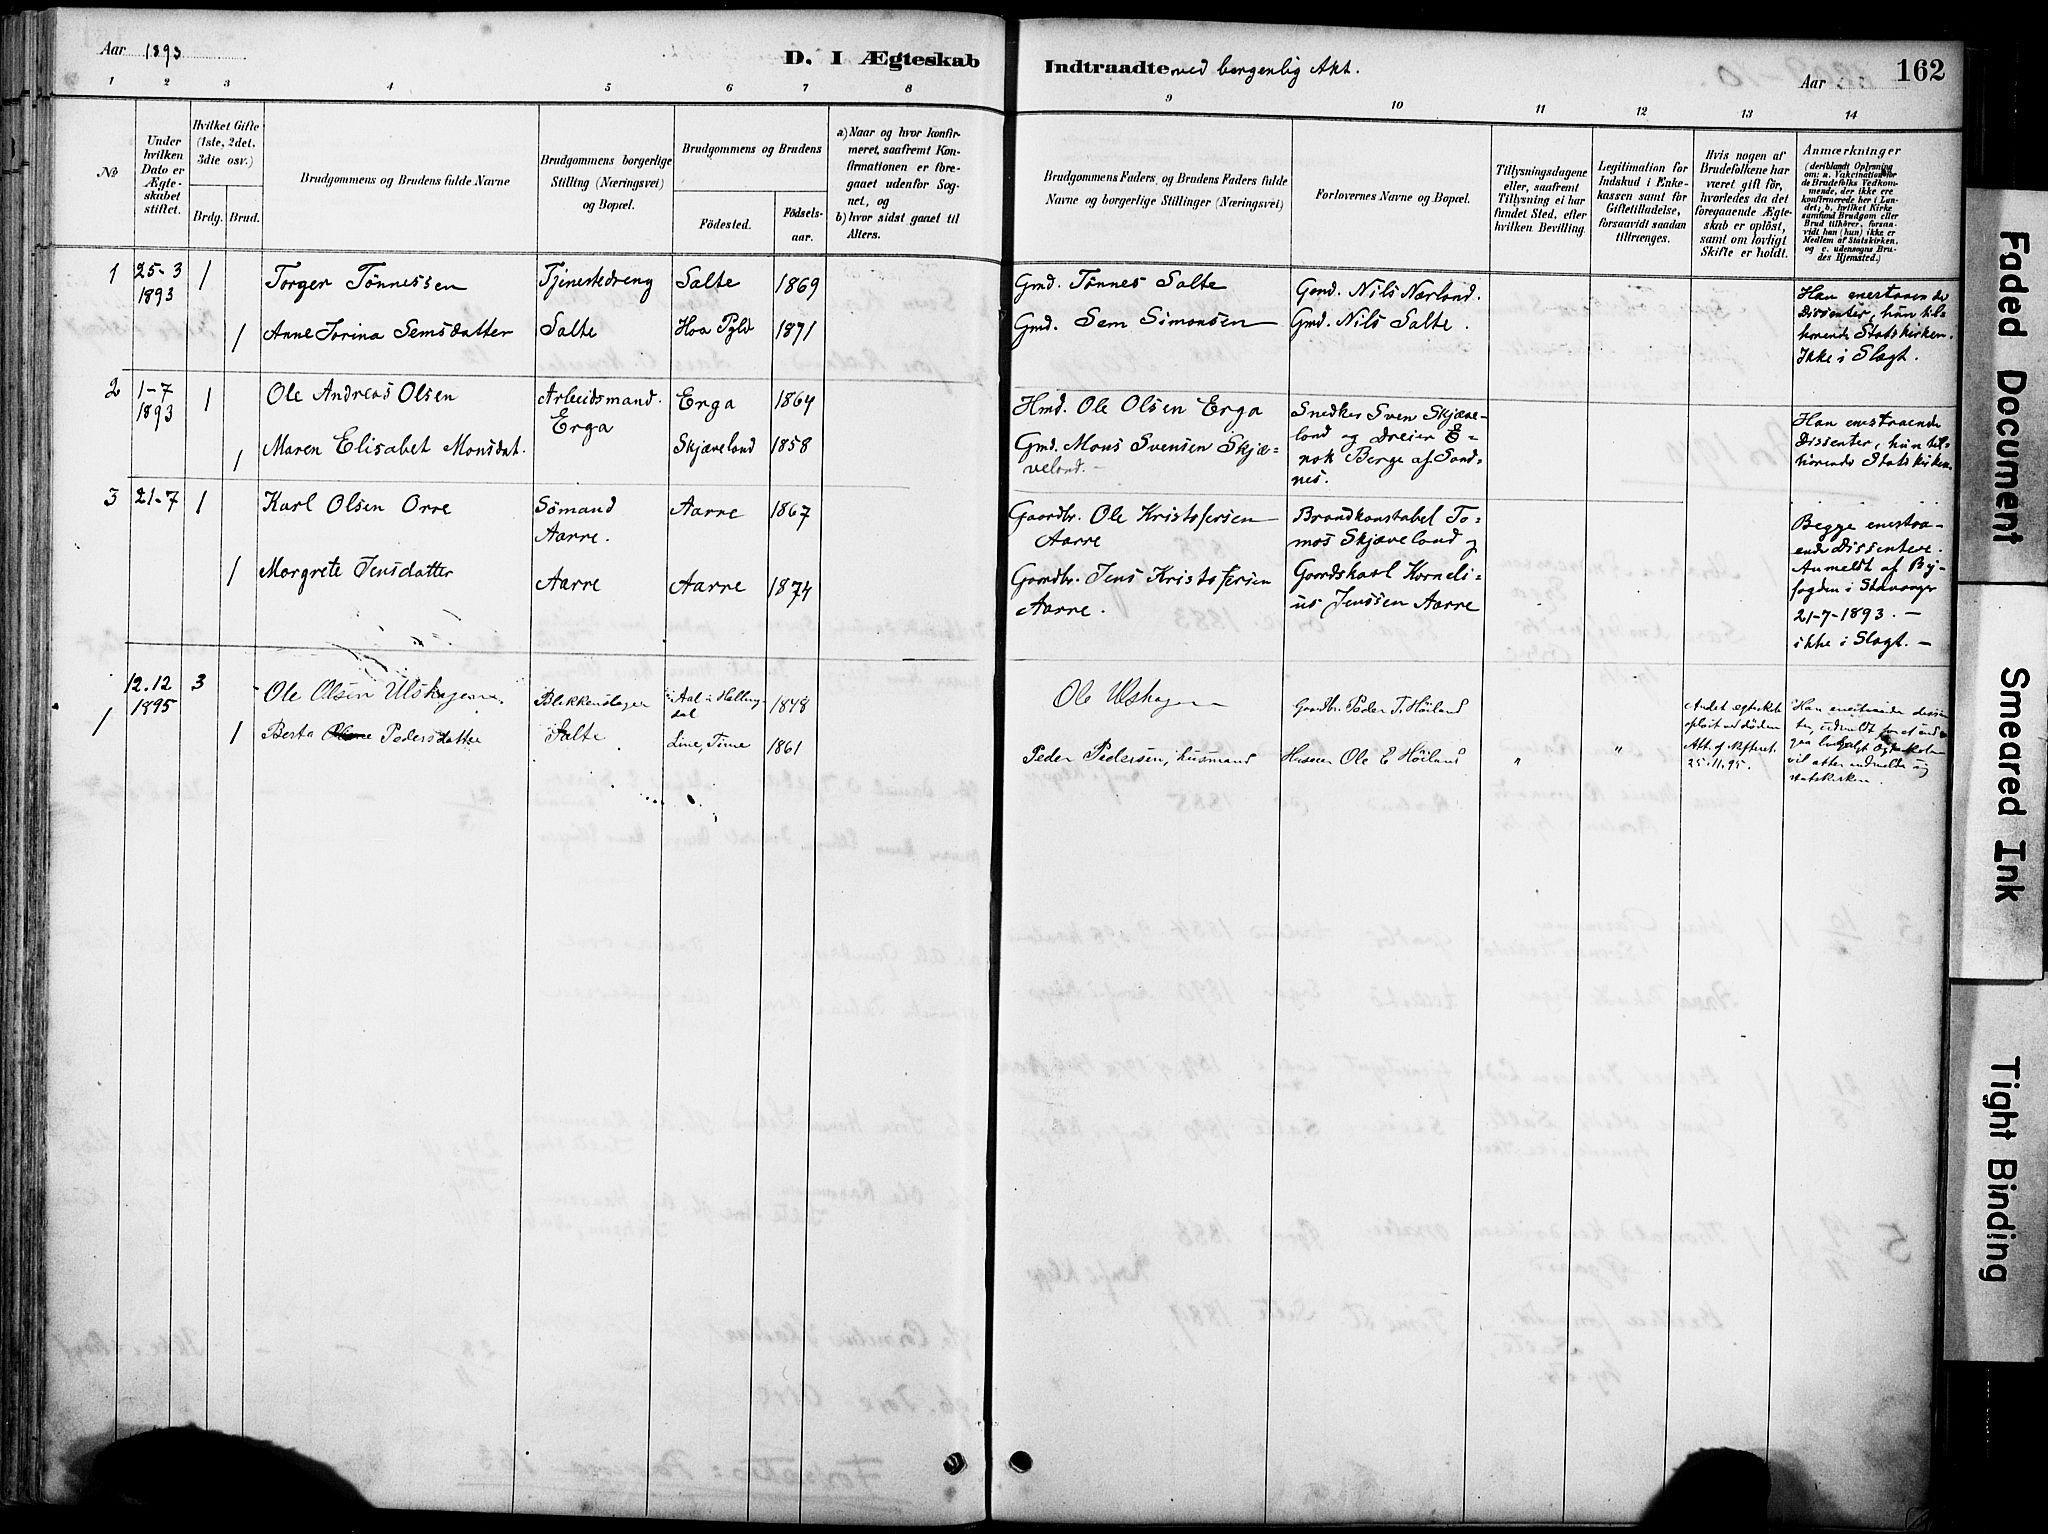 Aar 1893
D. I Ægteskab
Indtraadte ved borgenlig Akt.
Aar
162
1 2 3 4 5 6 7 8
9 10 11 12 13 14
No
Under hvilken Dato er Ægteskabet stiftet.
Hvilket Gifte (1ste, 2det, 3die osv.)
Brdg. Brud.
Brudgommens og Brudens fulde Navne
Brudgommens borgerlige Stilling (Næringsvei) og Bopæl.
Brudgommens og Brudens
Födested. Födselsaar.
a) Naar og hvor konfirmeret, saafremt Konfirmationen er foregaaet udenfor Sognet, og
b) hvor sidst gaaet til Alters.
Brudgommens Faders, og Brudens Faders fulde Navne og borgerlige Stillinger (Næringsvei)
Forlovernes Navne og Bopæl.
Tillysningsdagene eller, saafremt Tillysning ei har fundet Sted, efter hvilken Bevilling.
Legitimation for Indskud i Enkekassen samt for Giftetilladelse, forsaavidt saadan tiltrænges.
Hvis nogen af Brudefolkene har været gift för, hvorledes da det foregaaende Ægteskab er oplöst, samt om lovligt Skifte er holdt.
Anmærkninger
(deriblandt Oplysning om: a. Vakcination for de Brudefolks Vedkommende, der ikke ere konfirmerede her i Landet; b, hvilket Kirkesamfund Brudgom eller Brud tilhörer, forsaavidt han (hun) ikke er Medlem af Statskirken, og c. udensogns Brudes Hjemsted.)
1 25-3 1893 1 Torger Tönnessen Tjenestedreng Salte 1869
Gmd. Tönnes Salte Gmd. Nils Nærland.
1 Anne Serina Semsdatter Salte Hoa 1871
Gmd. Sem Simonsen Gmd. Nils Salte.
Han enestaaende
Dissenter, hun tilhörende Statskirken.
Ikke i Slægt.
2 1-7 1893 1 Ole Andreas Olsen Arbeidsmand. Erga Erga 1864
Hmd. Ole Olsen Erga
1 Maren Elisabet Monsdat. Skjæveland 1858
Gmd. Mons Svensen Skjæveland.
Snedker Sven Skjæveland og Dreier Enok Berge af Sandnes.
Han enestaaende
Dissenter, hun tilhörende Statskirken.
3 21-7 1 Karl Olsen Orre Sömand Aarre. Aarre 1867
Gaardbr. Ole Kristofersen Aarre
Brandkonstabel Tomas Skjæveland og
1 Margrete Jensdatter Aarre Aarre 1874
Gaardbr. Jens Kristofersen Aarre.
Gaardskarl Kornelius Jenssen Aarre
Begge enestaaende Dissentere.
Anmeldt af Byfogden i Stavanger
21-7-1893. –
ikke i Slægt. –
1 12.12 1895 3 Ole Olsen Ulshagen. Blikkenslager Aal i Hallingdal 1848
Ole Ulshagen Gaardbr. Peder T. Höiland
1 Berta Pedersdatter Salte Line, Time 1861
Peder Pedersen, husmand Ole E Höiland " "
Andet egteskab oplöst ved döden
Att. af skifteret. 25.11.95.
Han enestaaende dissenter, udmeldt for at indgaa lovligt Ægteskab
vil atter indmelde sig statskirken.
Faded Document
Smeared Ink
Tight Binding